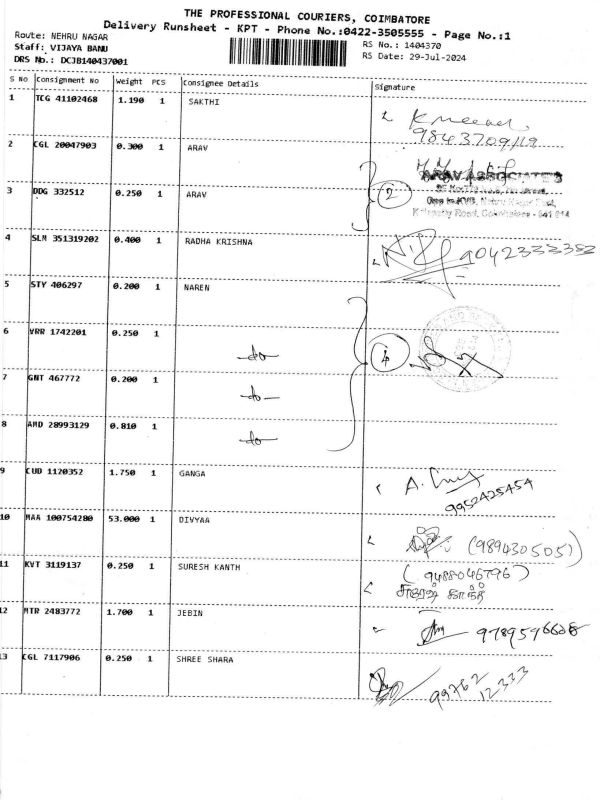 THE PROFESSIONAL COURIERS, COIMBATORE
Delivery Runsheet - KPT - Phone No.:0422-3505555 - Page No.:1
Route: NEHRU NAGAR
Staff: VIJAYA BANU
DRS No.: DCJB140437001
RS No.: 1404370
RS Date: 29-Jul-2024
S NO Consignment No Weight PCS Consignee Details Signature
1 TCG 41102468 1.190 1 SAKTHI
2 CGL 20047903 0.300 1 ARAV
ARAV ASSOCIATES
3 DDG 332512 0.250 1 ARAV 2
4 SLM 351319202 0.400 1 RADHA KRISHNA 9042333382
5 STY 406297 0.200 1 NAREN
6 VRR 1742201 0.250 1 -do- 4
7 GNT 467772 0.200 1 -do-
8 AMD 28993129 0.810 1 -do-
9 CUD 1120352 1.750 1 GANGA
9952425454
10 MAA 100754280 53.000 1 DIVYAA (9894305051)
11 KVT 3119137 0.250 1 SURESH KANTH (9488046796)
சுரேஷ் காந்த்
12 MTR 2483772 1.700 1 JEBIN 9789596628
13 CGL 7117906 0.250 1 SHREE SHARA 99762
12333